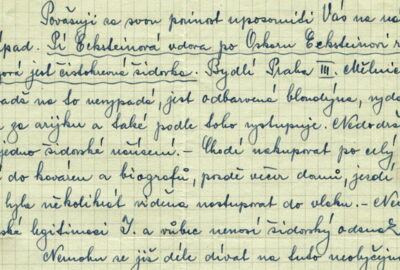 Považuji za svou povinost uposorniti Vás na ná
pád. Pí Ecksteinová vdova po Oskaru Ecksteinovi r
ová jest čistokrevná židovka. Bydlí Praha III. Mělnic
adě na to nevypadá, jest odbarvená blondýna, vydá
za arijku a také podle toho vystupuje. Nedodrž
jedno židovské nařízení. – Chodí nakupovat po celý
do kaváren a biografů, pozdě večer domů, jezdí
byla několikrát viděna nastupovat do vlaku. – Ne
ské legitimaci J. a vůbec nenosí židovský odznak
Nemohu se již déle dívat na tuto neobyčejnou